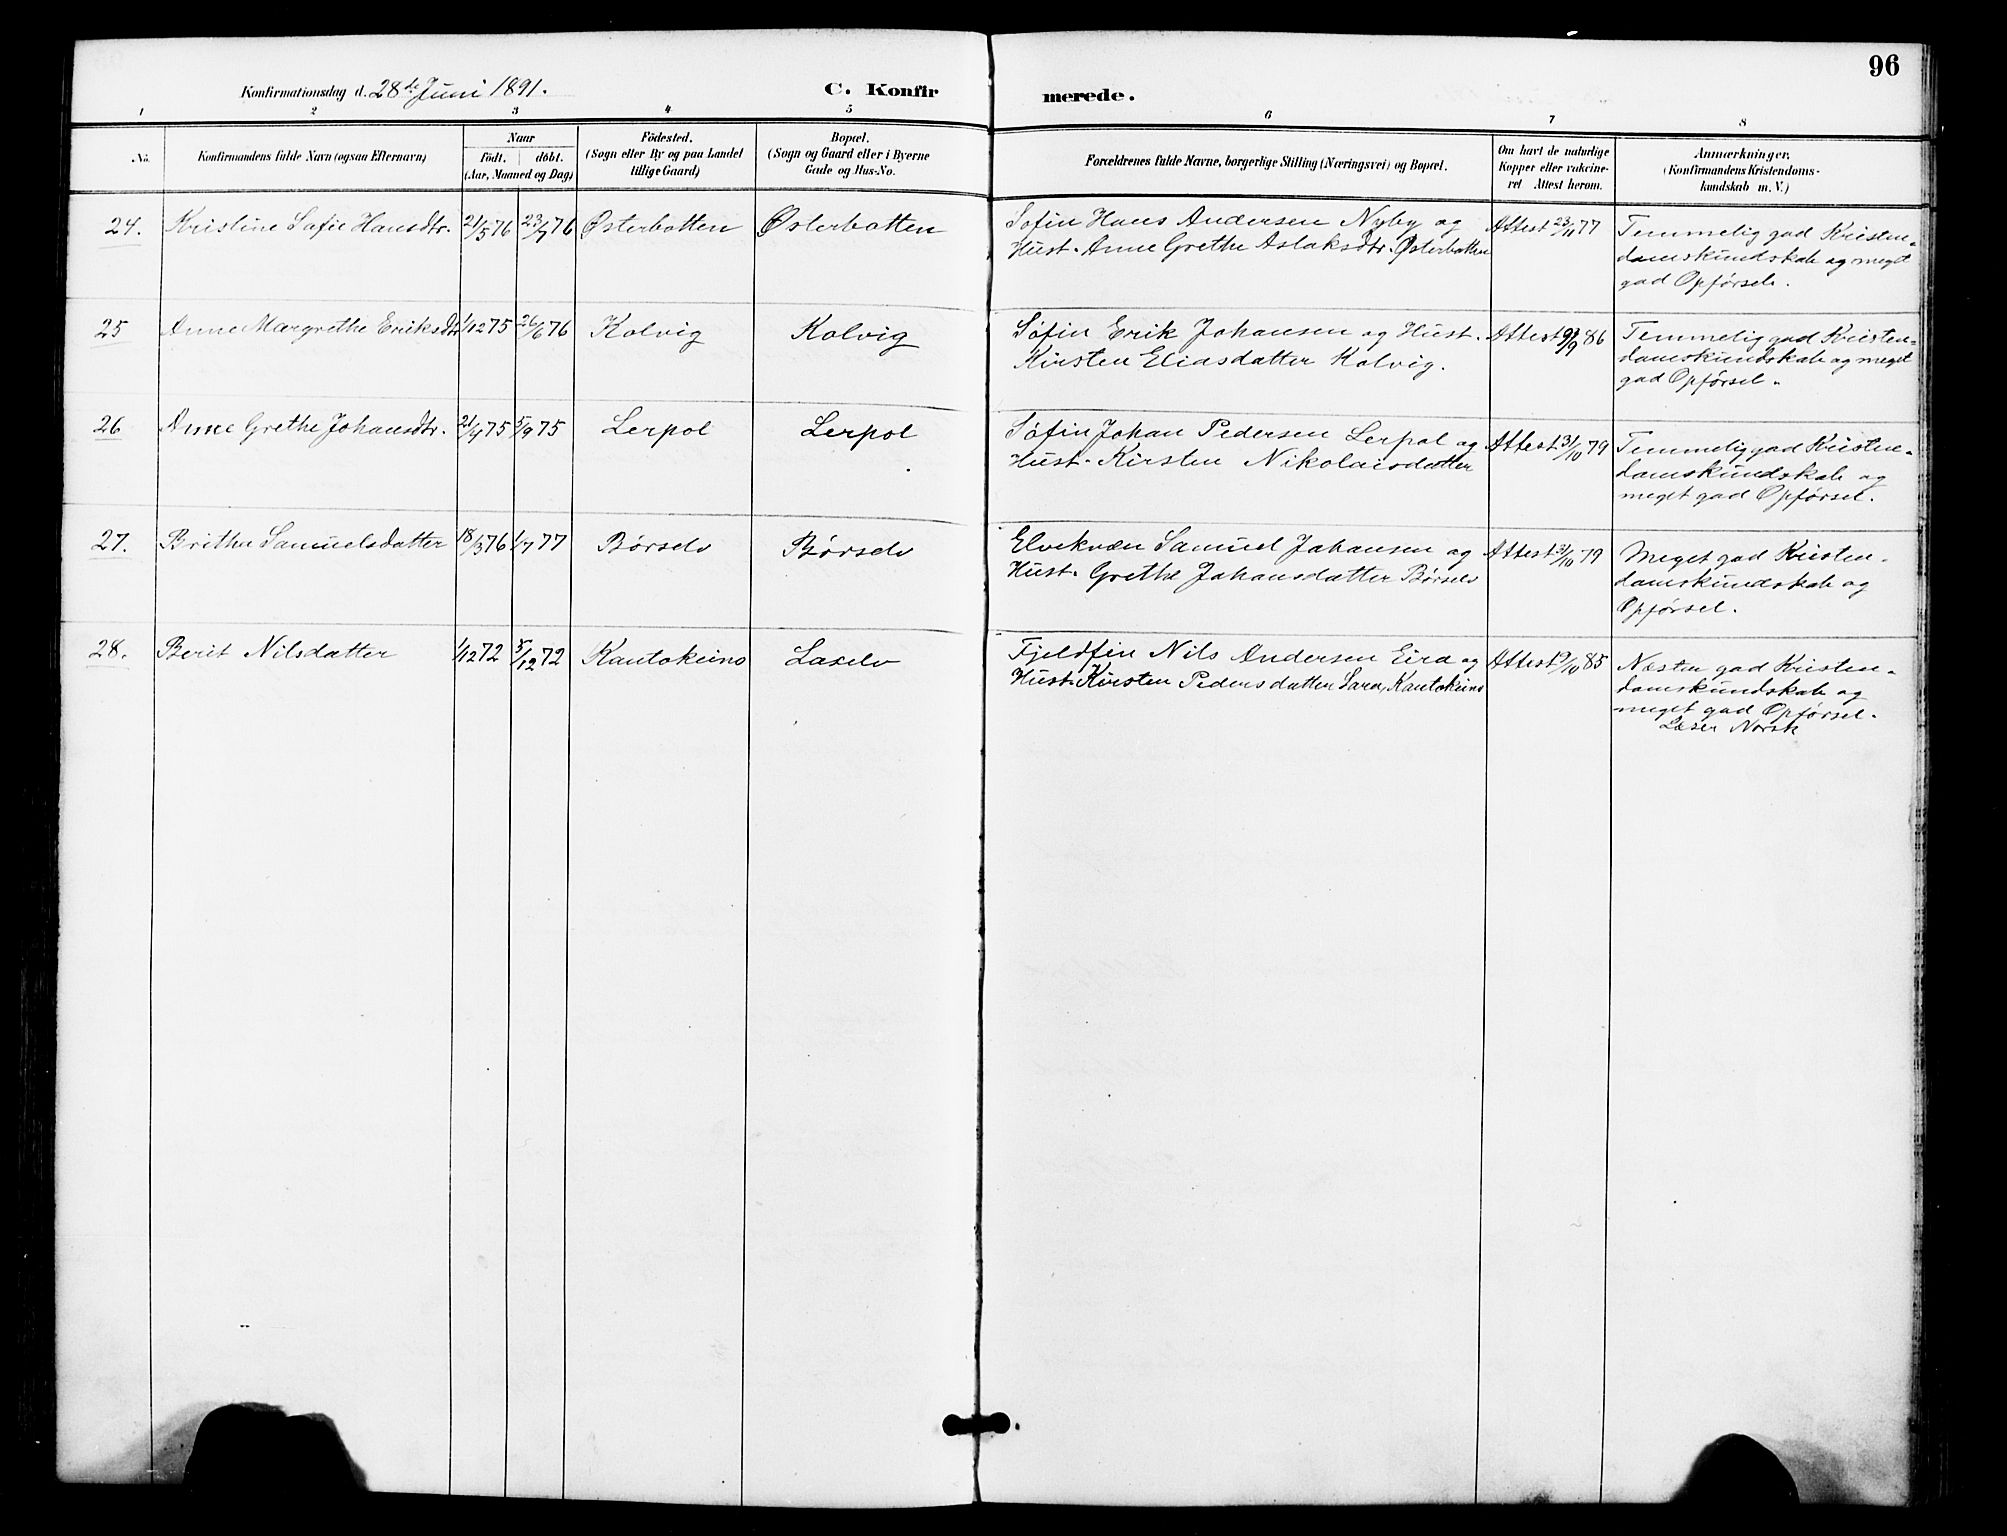 96
Konfirmationsdag d. 28de Juni 1891. C. Konfir merede.
1 2 3 4 5 6 7 8
No. Konfirmandens fulde Navn (ogsaa Efternavn) Naar födt. döbt. (Aar, Maaned og Dag) Födested. (Sogn eller By og paa Landet tillige Gaard) Bopæl. (Sogn og Gaard eller i Byerne Gade og Hus-No. Forældrenes fulde Navne, borgerlige Stilling (Næringsvei) og Bopæl. Om havt de naturlige Kopper eller vakcineret. Attest herom. Anmærkninger. (Konfirmandens Kristendomskundskab m. V.)
24. Kristine Sofie Hansdtr. 21/5 76 23/7 76 Østerbotten Østerbotten Søfin Hans Andersen Nyby og Attest 23/11 77 Temmelig god Kristen-
Hust. Anne Grethe Aslaksdtr. Østerbotten domskundskab og meget
god Opførsel.
25 Anne Margrethe Eriksdtr 1/12 75 26/6 76 Kolvig Kolvig Søfin Erik Johansen og Hust. Attest 9/9 86 Temmelig god Kristen-
Kirsten Eliasdatter Kolvig. domskundskab og meget
god Opførsel.
26 Anne Grethe Johansdtr. 21/4 75 5/9 75 Lerpol Lerpol Søfin Johan Pedersen Lerpol og Attest 31/10 79 Temmelig god Kristen-
Hust. Kirsten Nikolaisdatter domskundskab og
meget god Opførsel.
27. Britha Samuelsdatter 18/3 76 1/7 77 Børselv Børselv Elvekvæn Samuel Johansen og Attest 31/10 79 Meget god Kristen-
Hust. Grethe Johansdatter Børselv domskundskab og
Opførsel.
28. Berit Nilsdatter 1/12 72 5/12 72 Kautokeino Laxelv Fjeldfin Nils Andersen Eira og Attest 9/10 85 Næsten god Kristen-
Hust. Kirsten Pedersdatter Sara, Kautokeino domskundskab og
meget god Opførsel.
Læser Norsk